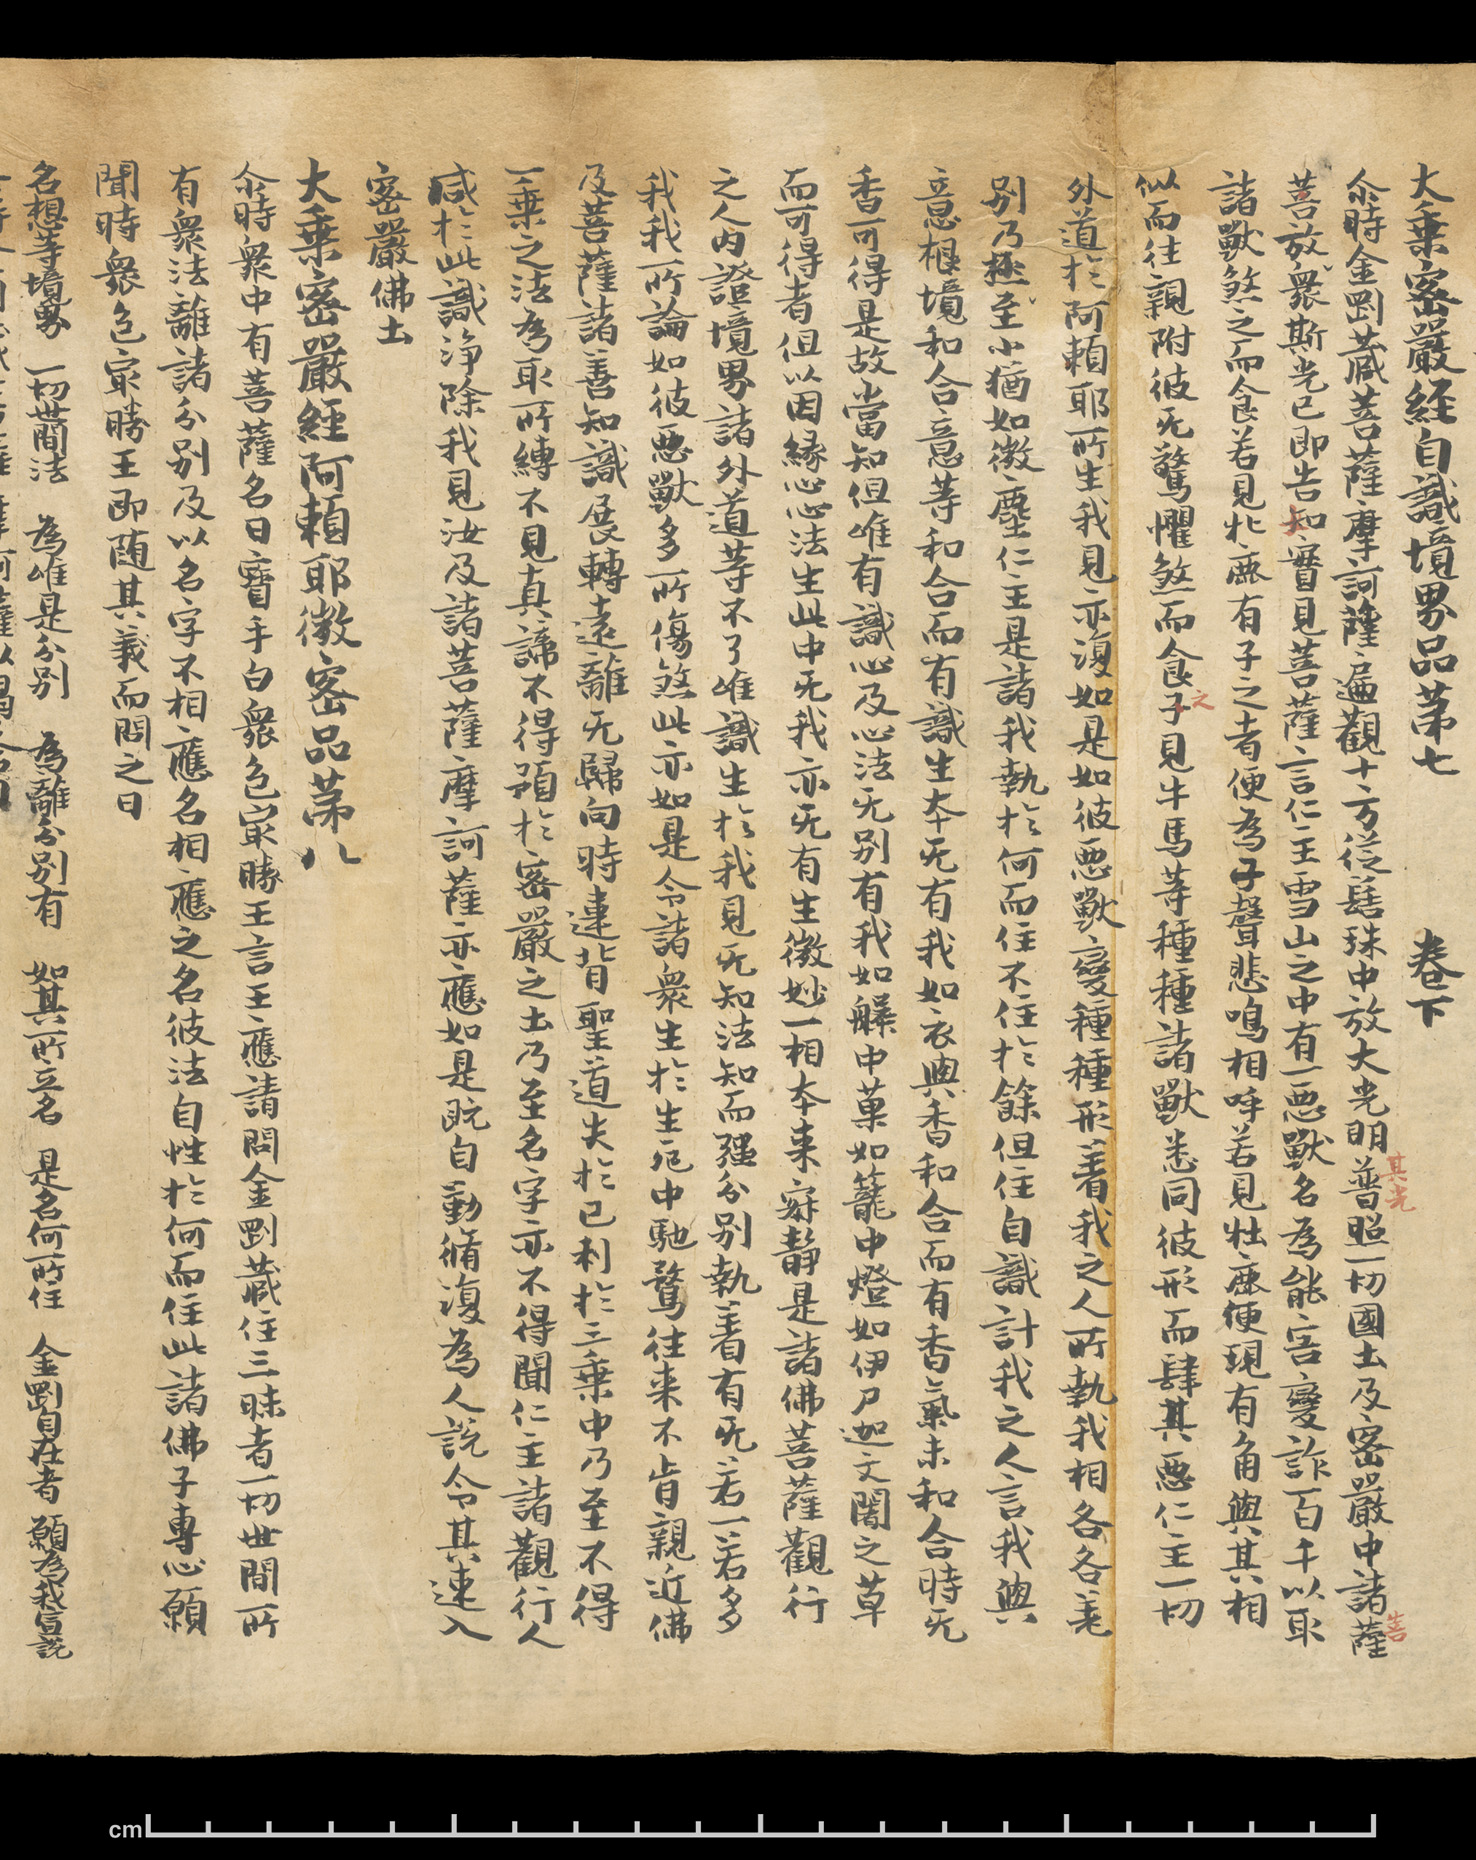 大乗密嚴經自識境界品苐七 卷下
尒時金剛藏菩薩摩訶薩遍觀十方從髻珠中放大光明普照一切國土及密嚴中諸薩
其光
菩
菩放衆斯光已即告知實見菩薩言仁主雪山之中有一惡獸名為能害變詐百千以取
諸獸煞之而食若見牝鹿有子之者便為子聲悲鳴相呼若見牡鹿便現有角與其相
似而往親附彼无驚懼煞而食子見牛馬等種種諸獸悉同彼形而肆其惡仁主一切
之
外道於阿賴耶所生我見亦復如是如彼惡獸變種種形着我之人所執我相各各差
別乃極至小猶如微塵仁主是諸我執於何而住不住於餘但住自識計我之人言我與
意根境和合意等和合而有識生本无有我如衣與香和合而有香氣未和合時无
香可得是故當知但唯有識心及心法无別有我如𦨣中菓如籠中燈如伊尸迦文闍之草
而可得者但以因緣心心法生此中无我亦无有生微妙一相本来寂静是諸佛菩薩觀行
之人内證境界諸外道等不了唯識生於我見无知法知而强分別執着有无若一若多
我我所論如彼惡獸多所傷煞此亦如是令諸衆生於生死中馳騖往来不肯親近佛
及菩薩諸善知識展轉遠離无歸向時違背聖道失於已利於三乗中乃至不得
一乗之法為取所縛不見真諦不得預於密嚴之土乃至名字亦不得聞仁主諸觀行人
咸於此識淨除我見汝及諸菩薩摩訶薩亦應如是既自勤脩復為人說令其速入
密嚴佛土
大乗密嚴經阿賴耶微密品苐八
尒時衆中有菩薩名曰寶手白衆色寂勝王言王應請問金剛藏住三昧者一切世間所
有衆法離諸分別及以名字不相應名相應之名彼法自性於何而住此諸佛子專心願
聞時衆色寂勝王即随其義而問之曰
名想等境界 一切世間法 為唯是分別 為離分別有 如其所立名 是名何所住 金剛自在者 願為我宣說